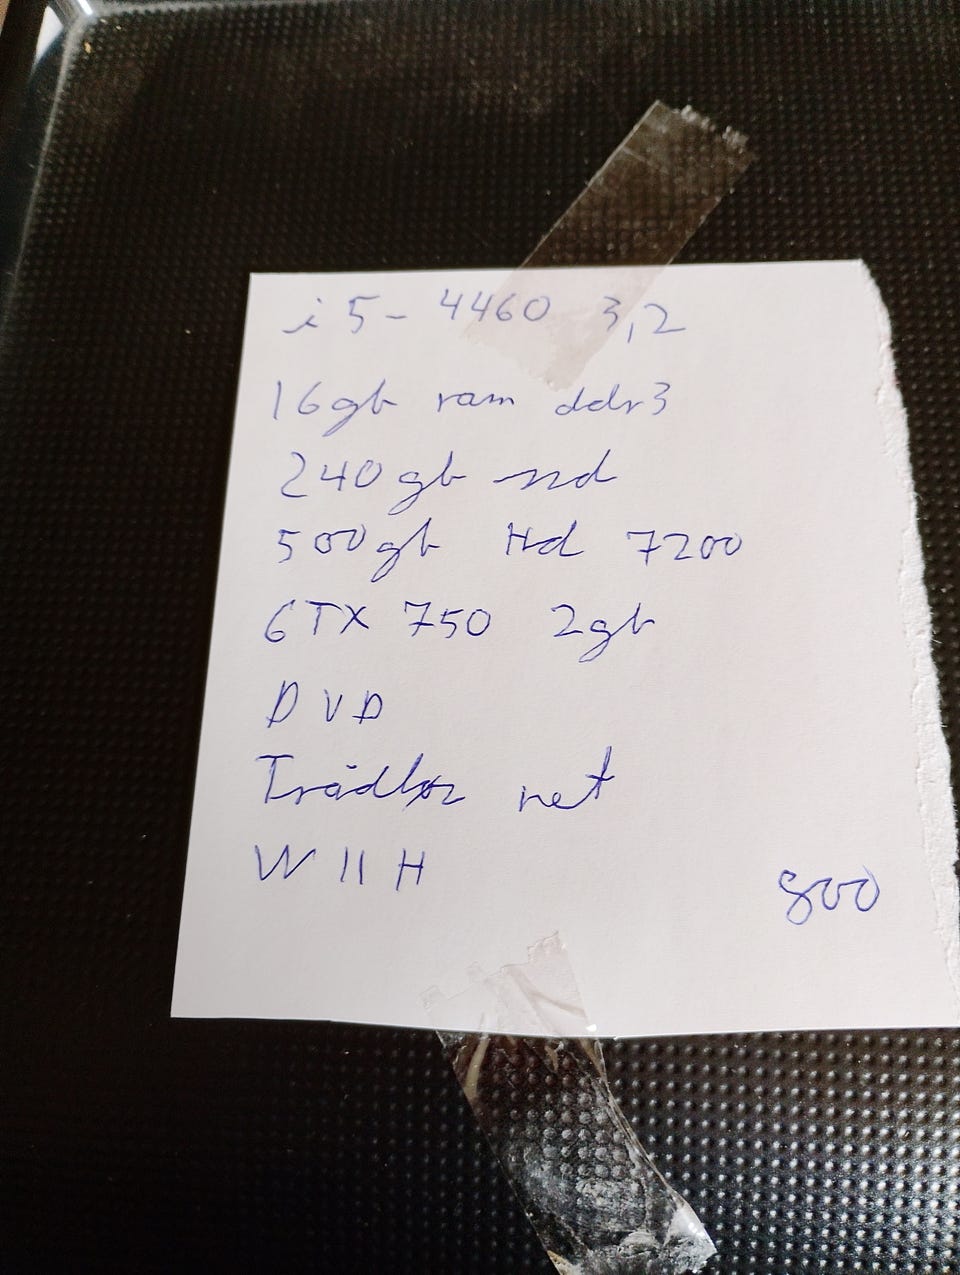 i5- 4460 3,2
16gb ram ddr3
240gb ssd
500gb Hd 7200
GTX 750 2gb
DVD
Trådløs net
W 11 H
800